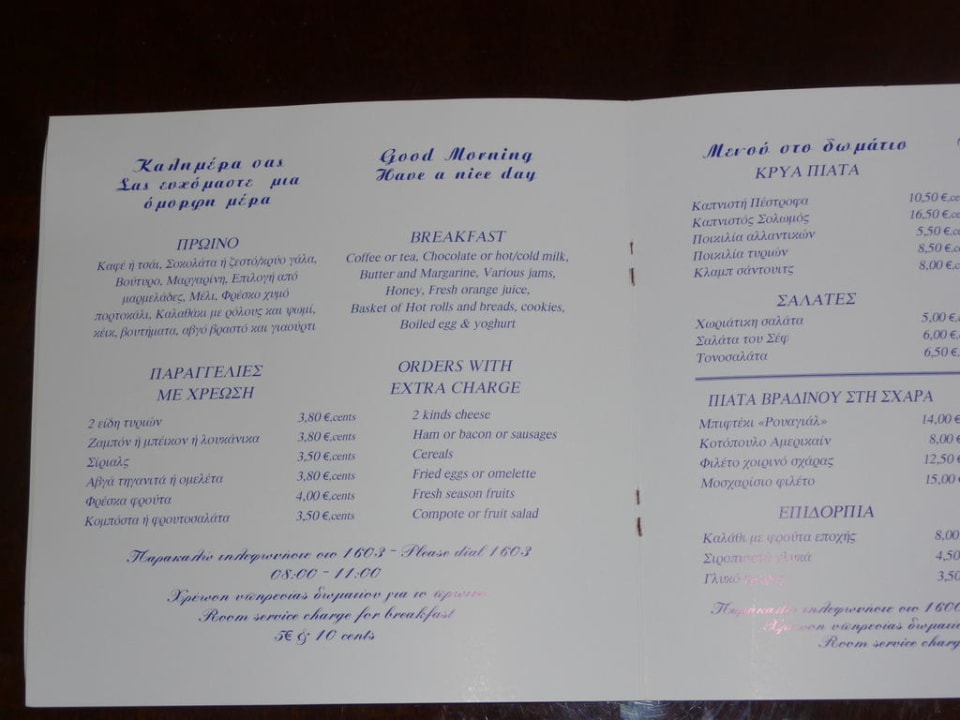 Καλημέρα σας
Σας ευχόμαστε μια
όμορφη μέρα
Good Morning
Have a nice day
ΠΡΩΙΝΟ
Καφέ ή τσάι, Σοκολάτα ή ζεστό/κρύο γάλα,
Βούτυρο, Μαργαρίνη, Επιλογή από
μαρμελάδες, Μέλι, Φρέσκο χυμό
πορτοκάλι, Καλαθάκι με ρόλους και ψωμί,
κέικ, βουτήματα, αβγό βραστό και γιαούρτι
BREAKFAST
Coffee or tea, Chocolate or hot/cold milk,
Butter and Margarine, Various jams,
Honey, Fresh orange juice,
Basket of Hot rolls and breads, cookies,
Boiled egg & yoghurt
ΠΑΡΑΓΓΕΛΙΕΣ
ΜΕ ΧΡΕΩΣΗ
ORDERS WITH
EXTRA CHARGE
2 είδη τυριών 3,80 €,cents 2 kinds cheese
Ζαμπόν ή μπέικον ή λουκάνικα 3,80 €,cents Ham or bacon or sausages
Σίριαλς 3,50 €,cents Cereals
Αβγά τηγανιτά ή ομελέτα 3,80 €,cents Fried eggs or omelette
Φρέσκα φρούτα 4,00 €,cents Fresh season fruits
Κομπόστα ή φρουτοσαλάτα 3,50 €,cents Compote or fruit salad
Παρακαλώ τηλεφωνήστε στο 1603 - Please dial 1603
08:00 - 11:00
Χρέωση υπηρεσίας δωματίου για το πρωινό
Room service charge for breakfast
5€ & 10 cents
Μενού στο δωμάτιο
ΚΡΥΑ ΠΙΑΤΑ
Καπνιστή Πέστροφα 10,50 €,ce
Καπνιστός Σολωμός 16,50 €,ce
Ποικιλία αλλαντικών 5,50 €,ce
Ποικιλία τυριών 8,50 €,ce
Κλαμπ σάντουιτς 8,00 €,ce
ΣΑΛΑΤΕΣ
Χωριάτικη σαλάτα 5,00 €,
Σαλάτα του Σέφ 6,00 €,
Τονοσαλάτα 6,50 €,
ΠΙΑΤΑ ΒΡΑΔΙΝΟΥ ΣΤΗ ΣΧΑΡΑ
Μπιφτέκι «Ρουαγιάλ» 14,00 €
Κοτόπουλο Αμερικαίν 8,00 €
Φιλέτο χοιρινό σχάρας 12,50 €
Μοσχαρίσιο φιλέτο 15,00 €
ΕΠΙΔΟΡΠΙΑ
Καλάθι με φρούτα εποχής 8,00
Σιροπιαστά γλυκά 4,50
Γλυκό 3,50
Παρακαλώ τηλεφωνήστε στο 1600
Χρέωση υπηρεσίας δωματίου
Room service charg